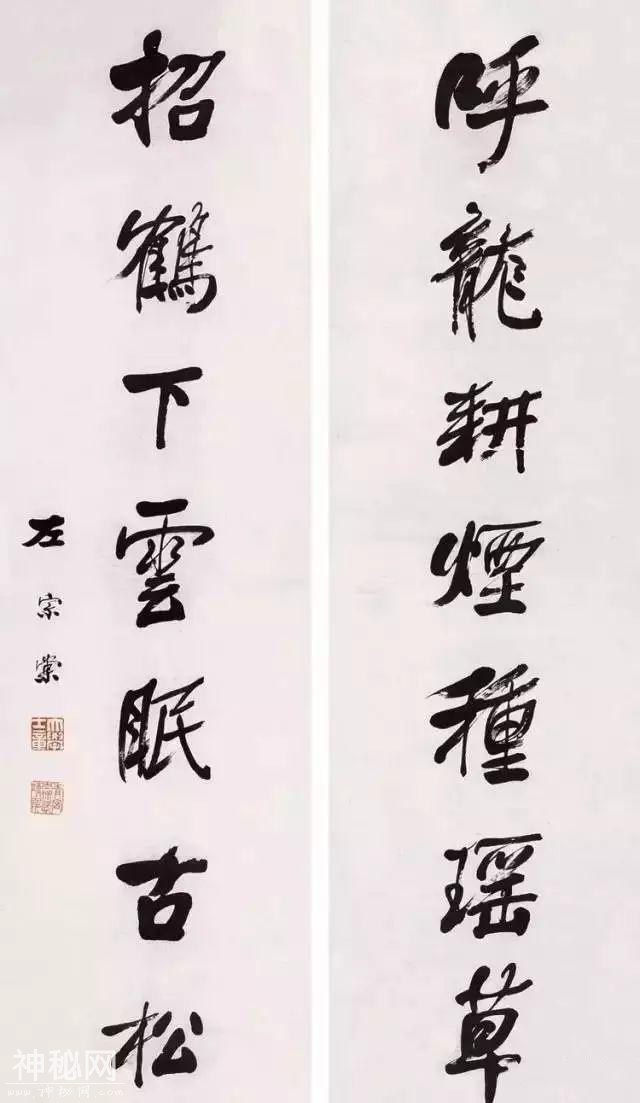 呼龍耕煙種瑶草
招鶴下雲眠古松
左宗棠
神秘网